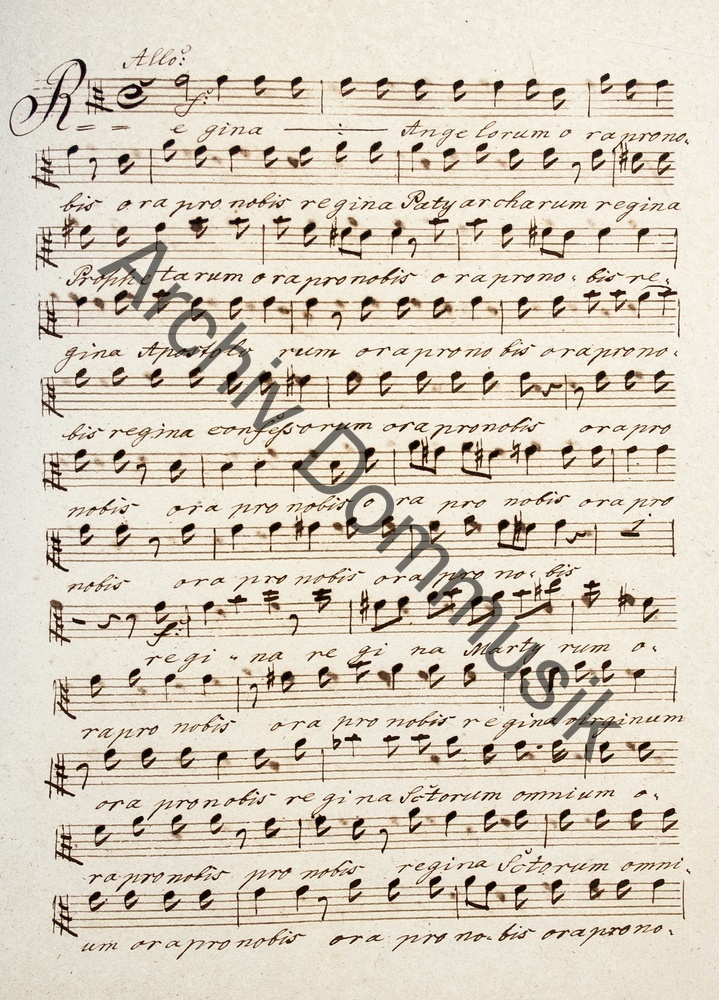 Allo:
f:
R = = e gina — : — Angelorum o ra prono-
bis ora pro nobis regina Patyarcharum regina
Prophetarum ora pro nobis o ra prono- bis re-
gina Apostolo rum ora prono bis ora prono-
bis regina confessorum ora pro nobis ora pro
nobis ora pro nobis o ra pro nobis ora pro
nobis ora pro nobis ora pro no- bis
1
f:
regi - na re gi na Marty rum o-
ra pro nobis ora pro nobis regina virginum
ora pro nobis regina Sctorum omnium o-
ra pro nobis pro nobis regina Sctorum omni-
um ora pro nobis ora pro no- bis ora prono-
Archiv Dommusik